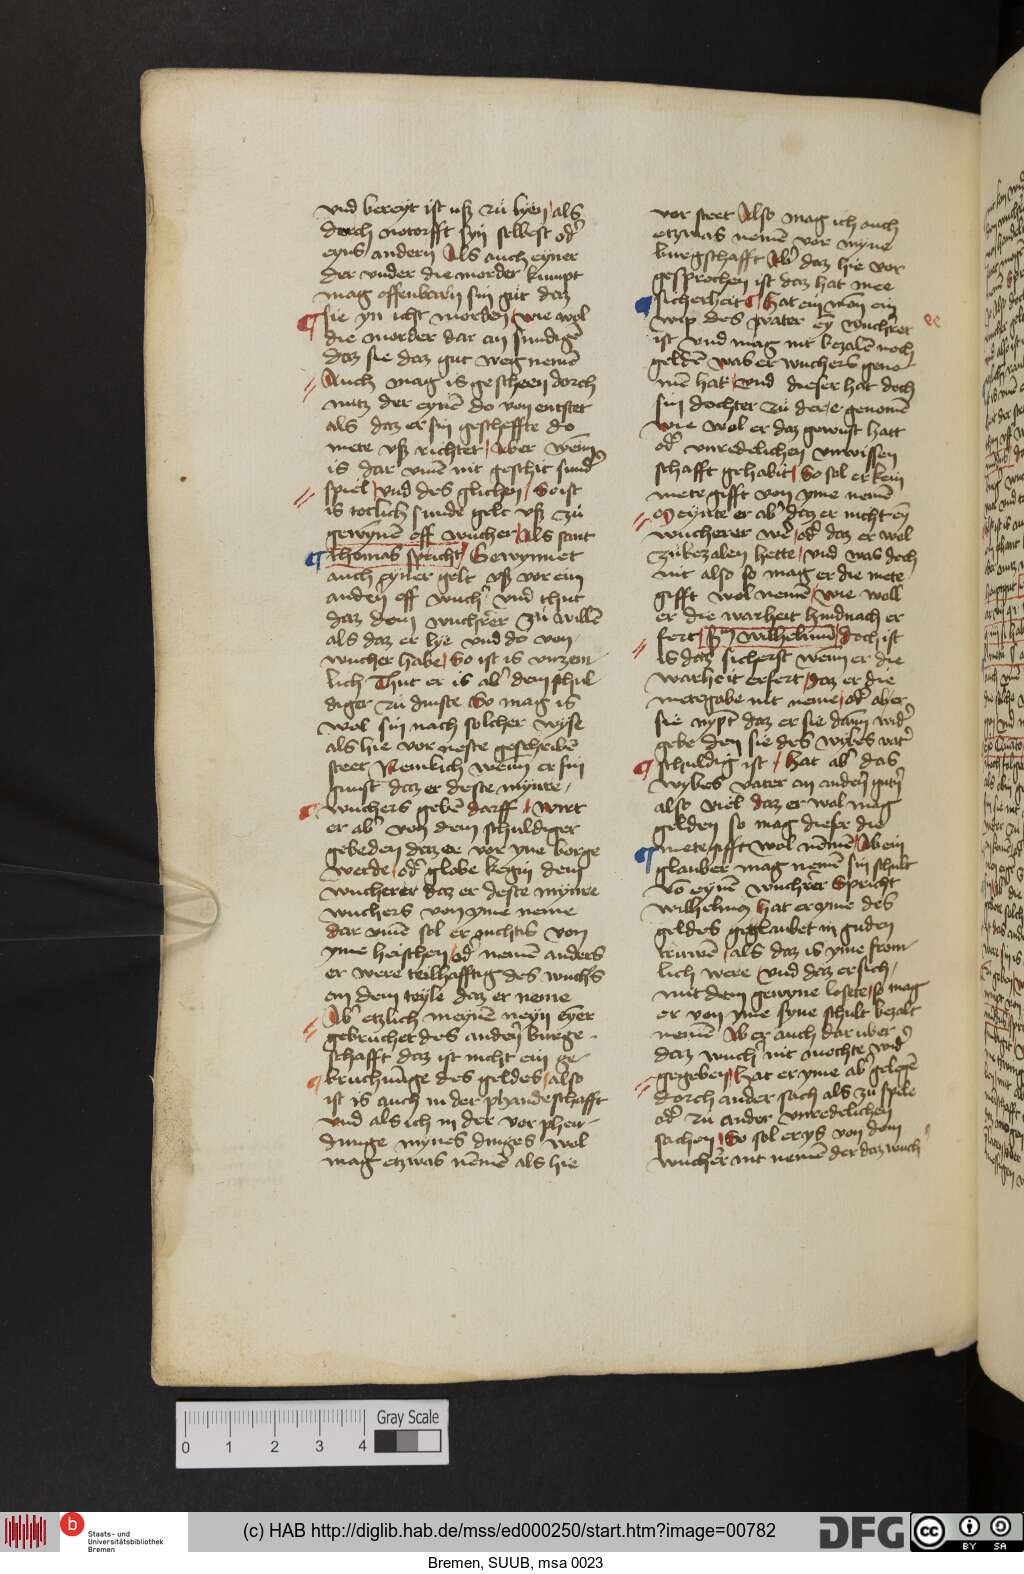 vnd bereyt ist uß zü lyen als
dorch notorfft syn selbest od̕
eyns andern Als auch eyner
der vnder die morder kumpt
mag offenbarn sin güt daz
sie yn icht morden wie wol
die morder dar an sundigē
daz sie daz gut weg nemē
Auch mag is gescheen dorch
nutz der eynē do von entstet
als daz er sin gescheffte do
mete vß richtet Aber wēnn
is dar vmē nit geschit sund̕
spiel vnd des glichen So ist
is totlich sunde gelt vß zü
gewynnē off wucher Als sant
thomas spricht Gewynnet
auch eyner gelt vß vor ein
anden off wuch̕ vnd thut
daz dem wuchrer zü willē
als daz er lye vnd do von
wucher habe So ist is vnzem
lich Thut er is ab̕ dem schul
diger zü dinste So mag is
wol sin nach solcher wyse
als hie vor neste geschribē
steet Nemlich wēnn er sin
gunst daz er deste mynre
wuchers gebē darff wirt
er ab̕ von dem schuldiger
gebeden daz er vor yne borge
werde od̕ globe kegin dem
wucherer daz er deste mynre
wuchers von yme neme
dar vmē sol er nichtis von
yme heischen od̕ nemē anders
er were teilhafftig des wuchs
an dem teyle daz er neme
Ab̕ etzlich meynē neyn eyner
gebruchet des anden burge
schafft daz ist nicht ein ge
bruchūnge des geldes also
ist is auch in der phandeschafft
vnd als ich in der vor phen
dunge mynes dinges wol
mag etzwas nēmē als hie
vor steet Also mag ich auch
etzwas nemē vor myne
burgschafft Ab̕ daz hie vor
gesprochen ist daz hat mee
sicherheit Hat ein man ein
wip des vater eȳ wuchrer
ist vnd mag nit bezalē noch
geldē was er wuchers geno
mē hat vnd dieser hat doch
sin dochter zü der e genomē
wie wol er daz gewust hatt
od̕ vnredelichen vnwissen
schafft gehabit So sol er kein
mete gifft von yme nemē
Meynte er ab̕ daz er nicht eȳ
wucherer wer od̕ daz er wol
zübezalen hette vnd was doch
nit also so mag er die mete
gifft wol nemē wie woll
er die warheit hindnach er
fert wilhelmus doch ist
is daz sicherst wenn er die
warheit erfert daz er die
metegobe nit neme od̕ aber
sie nympt daz er sie dann wid̕
gebe den sie des wybes vat̕
schuldig ist Hat ab̕ das
wybes vater an anderm gutē
also viel daz er wol mag
gelden so mag dieser die
metegifft wol nēmē Ab ein
glauber mag nemē sin schult
vō eynē wuchrer Spricht
wilhelmus Hat er yme des
geldes geglaubet in guden
truwē als daz is yme from
lich were vnd daz er sich
mit dem gewyne losete so mag
er von yme syne schult bezalt
nemē Ab er auch dar uber
daz wuch̕ nit mochte wid̕
gegeben Hat er yme ab̕ gelegē
dorch ander sach als zu spile
od̕ zu ander vnredelichen
sachen So sol er ys von dem
wuchrer nit nemē der daz wuch
Gray Scale
0 1 2 3 4
Staats- und
Universitätsbibliothek
Bremen
(c) HAB http://diglib.hab.de/mss/ed000250/start.htm?image=00782
DFG
cc BY SA
Bremen, SUUB, msa 0023